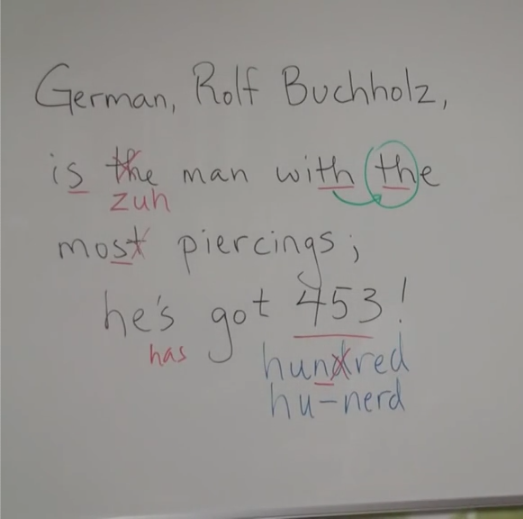 German, Rolf Buchholz,
is the man with the
zuh
most piercings;
he's got 453!
has
hundred
hu-nerd